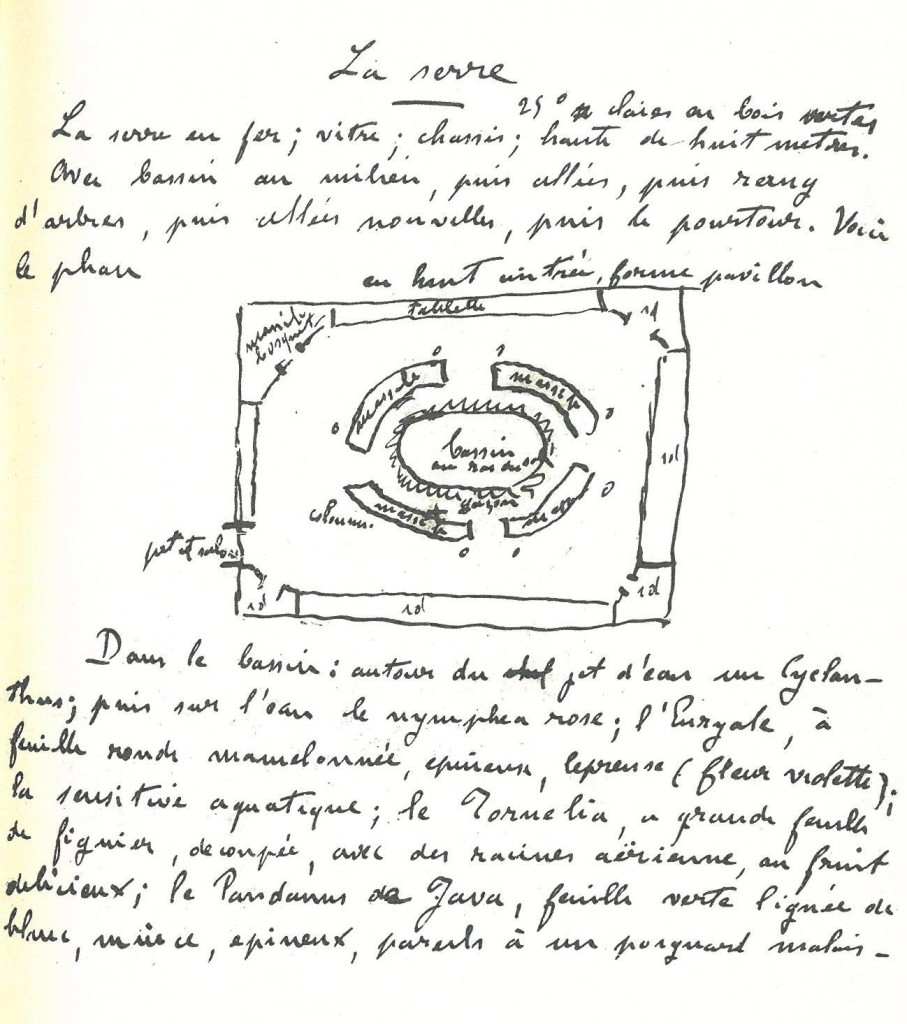 La serre
25° claies en bois vertes
La serre en fer; vitre; chassis; haute de huit metres.
Avec bassin au milieu, puis allées, puis rang
d'arbres, puis allées nouvelles, puis le pourtour. Voici
le plan
en haut entrée, forme pavillon
tablette
id
massif
bosquet
massif
massif
id
bassin
au ras du sol
gazon
massif
massif
colonnes.
petit salon
id
id
id
Dans le bassin: autour du jet d'eau un Cyclan-
thus; puis sur l'eau le nymphea rose; l'Euryale, à
feuille ronde mamelonnée, epineuse, lepreuse (fleur violette);
la sensitive aquatique; le Tornelia, a grande feuille
de figuier, decoupée, avec des racines aërienne, au fruit
delicieux; le Pandanus de Java, feuille verte lignée de
blanc, mince, epineux, pareils à un poignard malais-